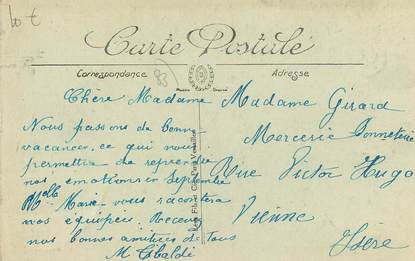 Carte Postale
Correspondance
Adresse
Chère Madame
Nous passons de bonnes
vacances, ce qui nous
permettra de reprendre
nos émotions en Septembre
Melle Marie vous racontera
nos équipées. Recevez
nos bonnes amitiés de tous
M Cibaldi
Madame Girard
Mercerie Bonneterie
Rue Victor Hugo
Vienne
Isère